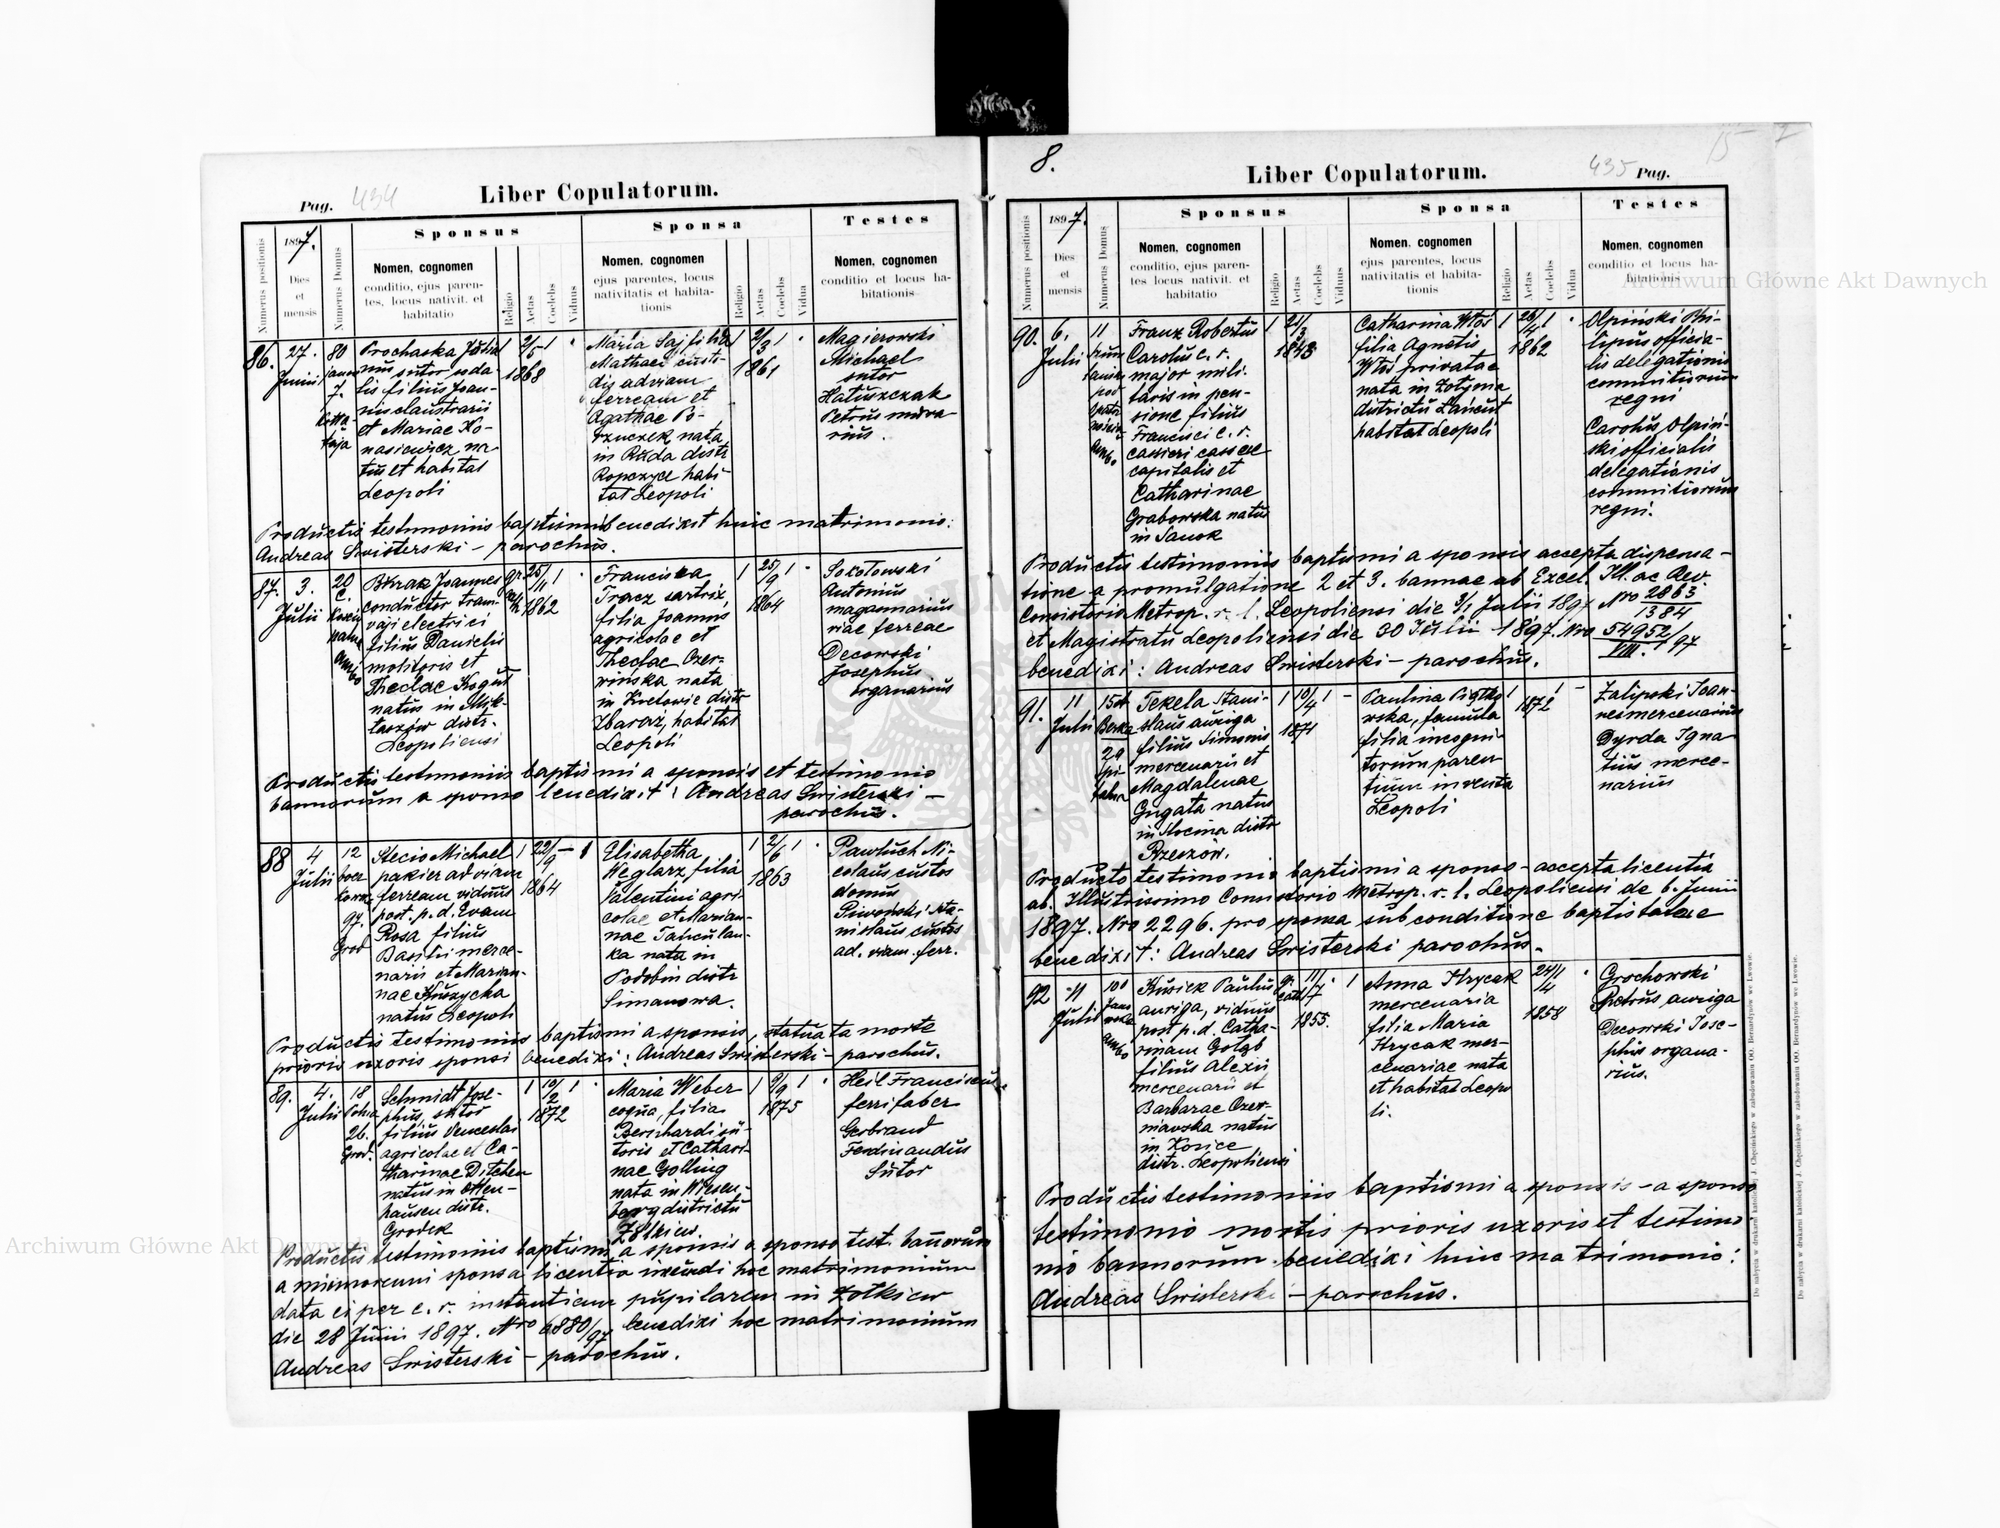 Pag. 434
Liber Copulatorum.
Numerus positionis
1897.
Dies
et
mensis
Numerus Domus
Sponsus
Nomen, cognomen
conditio, ejus paren-
tes, locus nativit. et
habitatio
Religio
Aetas
Coelebs
Viduus
Sponsa
Nomen, cognomen
ejus parentes, locus
nativitatis et habita-
tionis
Religio
Aetas
Coelebs
Vidua
Testes
Nomen, cognomen
conditio et locus ha-
bitationis
86.
27.
Junii
80
7.
Prochaska Juliа-
nus sutor soda-
lis filius Joan-
nis claustrarii
et Mariae Ko-
nasiewicz na-
tus et habitat
Leopoli
1
2/5
1868
1
Maria Saj filia
Mathaei custo-
dis ad viam
ferream et
Agathae
nata
in Ruda distr
Ropczyce habi-
tat Leopoli
1
2/3
1861
1
Magierowski
Michael
sutor
Hatuszczak
Petrus mura-
rius.
Productis testimoniis baptismi benedixit huic matrimonio:
Andreas Swisterski – parochus.
87.
3.
Julii
20
c.
Ambo
Joannes
conductor tram-
vaji electrici
filius Danielis
molitoris et
Theclae Kogut
natus in Mik-
łaszów distr.
Leopoliensi
gr.
cath
25/11
1862
1
Francisca
Tracz sartrix
filia Joannis
agricolae et
Theclae Ozer-
wińska nata
in Kretowie distr
Zbaraż, habitat
Leopoli
1
25/9
1864
1
Sokołowski
Antonius
magazinarius
viae ferreae
Decowski
Josephus
organarius
Productis testimoniis baptismi a sponsis et testimonio
bannorum a sponso benedixit: Andreas Swisterski –
parochus.
88
4
Julii
12
97.
Grod
Stecio Michael
pakier ad viam
ferream viduus
post. p. d. Evam
Rosa filius
Basilii merce-
narii et Marian-
nae Kuszycka
natus Leopoli
1
22/9
1864
–
1
Elisabetha
Węglarz filia
Valentini agri-
colae et Marian-
nae Tańculan-
ka nata in
Podobin distr
Limanowa.
1
2/6
1863
1
Pawluch Ni-
colaus custos
domus
Piwoński Sta-
nislaus custos
ad. viam. ferr.
Productis testimoniis baptismi a sponsis, statuta morte
prioris uxoris sponsi benedixi: Andreas Swisterski – parochus.
89.
4.
Julii
18
26.
Grod.
Schmidt Jose-
phus, sutor
filius Venceslai
agricolae et Ca-
tharinae Ditchen
natus in Otten-
hausen distr.
Grodek
1
10/2
1872
1
Maria Weber
coqua, filia
Bernhardi su-
toris et Cathari-
nae Golling
nata in Wiesen-
berg districtu
Żółkiew.
1
9/9
1875
1
Heil Franciscus
ferrifaber
Gerbrand
Ferdinandus
Sutor
Productis testimoniis baptismi a sponsis a sponso test. bannorum
a minorenni sponsa licentia ineundi hoc matrimonium
data ei per c. r. instantiam pupilarem in Żółkiew
die 28 Junii 1897. Nro 6880/97 benedixi hoc matrimonium
Andreas Swisterski – parochus.
8.
Liber Copulatorum.
435 Pag.
15
Numerus positionis
1897.
Dies
et
mensis
Numerus Domus
Sponsus
Nomen, cognomen
conditio, ejus paren-
tes, locus nativit. et
habitatio
Religio
Aetas
Coelebs
Viduus
Sponsa
Nomen, cognomen
ejus parentes, locus
nativitatis et habita-
tionis
Religio
Aetas
Coelebs
Vidua
Testes
Nomen, cognomen
conditio et locus ha-
bitationis
90.
6.
Julii
11
Ambo
Franz Robertus
Carolus c. r.
major mili-
taris in pen-
sione, filius
Francisci c. r.
cassieri cassae
capitalis et
Catharinae
Grabowska natus
in Sanok
1
21/3
1843
Catharina Wtos
filia Agnetis
Wtos privatae
nata in Zotynia
districtu Łańcut
habitat Leopoli
1
26/4
1862
1
Olpiński Phi-
lippus officia-
lis delegationis
commitiorum
regni
Carolus Olpiń-
ski officialis
delegationis
commitiorum
regni.
Productis testimoniis baptismi a sponsis accepta dispensa-
tione a promulgatione 2 et 3. bannae ab Excel. Ill. ac Rev.
Consistorio Metrop. r. l. Leopoliensi die 3/1 Julii 1897 Nro 2863/1384
et Magistratu Leopoliensi die 30 Julii 1897. Nro 54952/VIII. /97
benedixi: Andreas Swisterski – parochus.
91.
11
Julii
15
Berka
29
Tekela Stani-
slaus auriga
filius Simonis
mercenarii et
Magdalenae
Gugata natus
in Słocina distr
Rzeszów.
1
10/4
1871
1
–
Paulina Piątko-
wska, famula
filia incogni-
torum paren-
tium inventa
Leopoli
1
1872
1
–
Zalipski Joan-
nes mercenarius
Dyrda Igna-
tius merce-
narius
Producto testimonio baptismi a sponso – accepta licentia
ab. Illustrissimo Consistorio Metrop. r. l. Leopoliensi de 6. Junii
1897. Nro 2296. pro sponsa sub conditione baptisatae
benedixit: Andreas Swisterski parochus.
92
11
Julii
100
Ambo
Kusiek Paulus
auriga, viduus
post p. d. Catha-
rinam Gołąb
filius Alexii
mercenarii et
Barbarae Ozer-
niawska natus
in Zorice
distr. Leopoliensi
gr.
cath
11/7
1855.
1
Anna Hrycak
mercenaria
filia Maria
Hrycak mer-
cenariae nata
et habitat Leopo-
li.
24/4
1858
1
Grochowski
Petrus auriga
Decowski Jose-
phus organa-
rius.
Productis testimoniis baptismi a sponsis – a sponso
testimonio mortis prioris uxoris et testimo-
nio bannorum benedixi huic matrimonio:
Andreas Swisterski – parochus.
Do nabycia w drukarni katolickiej J. Chęcińskiego w zabudowaniu OO. Bernardynów we Lwowie.
Do nabycia w drukarni katolickiej J. Chęcińskiego w zabudowaniu OO. Bernardynów we Lwowie.
Archiwum Główne Akt Dawnych
Archiwum Główne Akt Dawnych